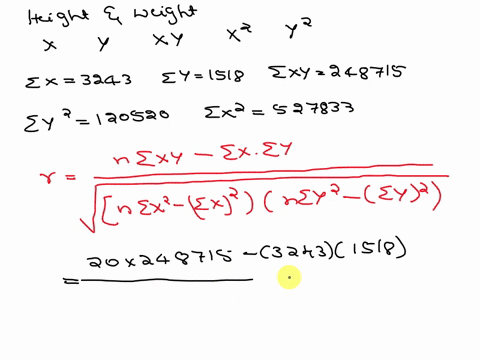 Height & Weight
X Y XY X² Y²
ΣX = 3243 ΣY = 1518 ΣXY = 248715
ΣY² = 120520 ΣX² = 527833
r = nΣXY − ΣX·ΣY
√[nΣX² − (ΣX)²) (nΣY² − (ΣY)²)
= 20 × 248715 − (3243)(1518)